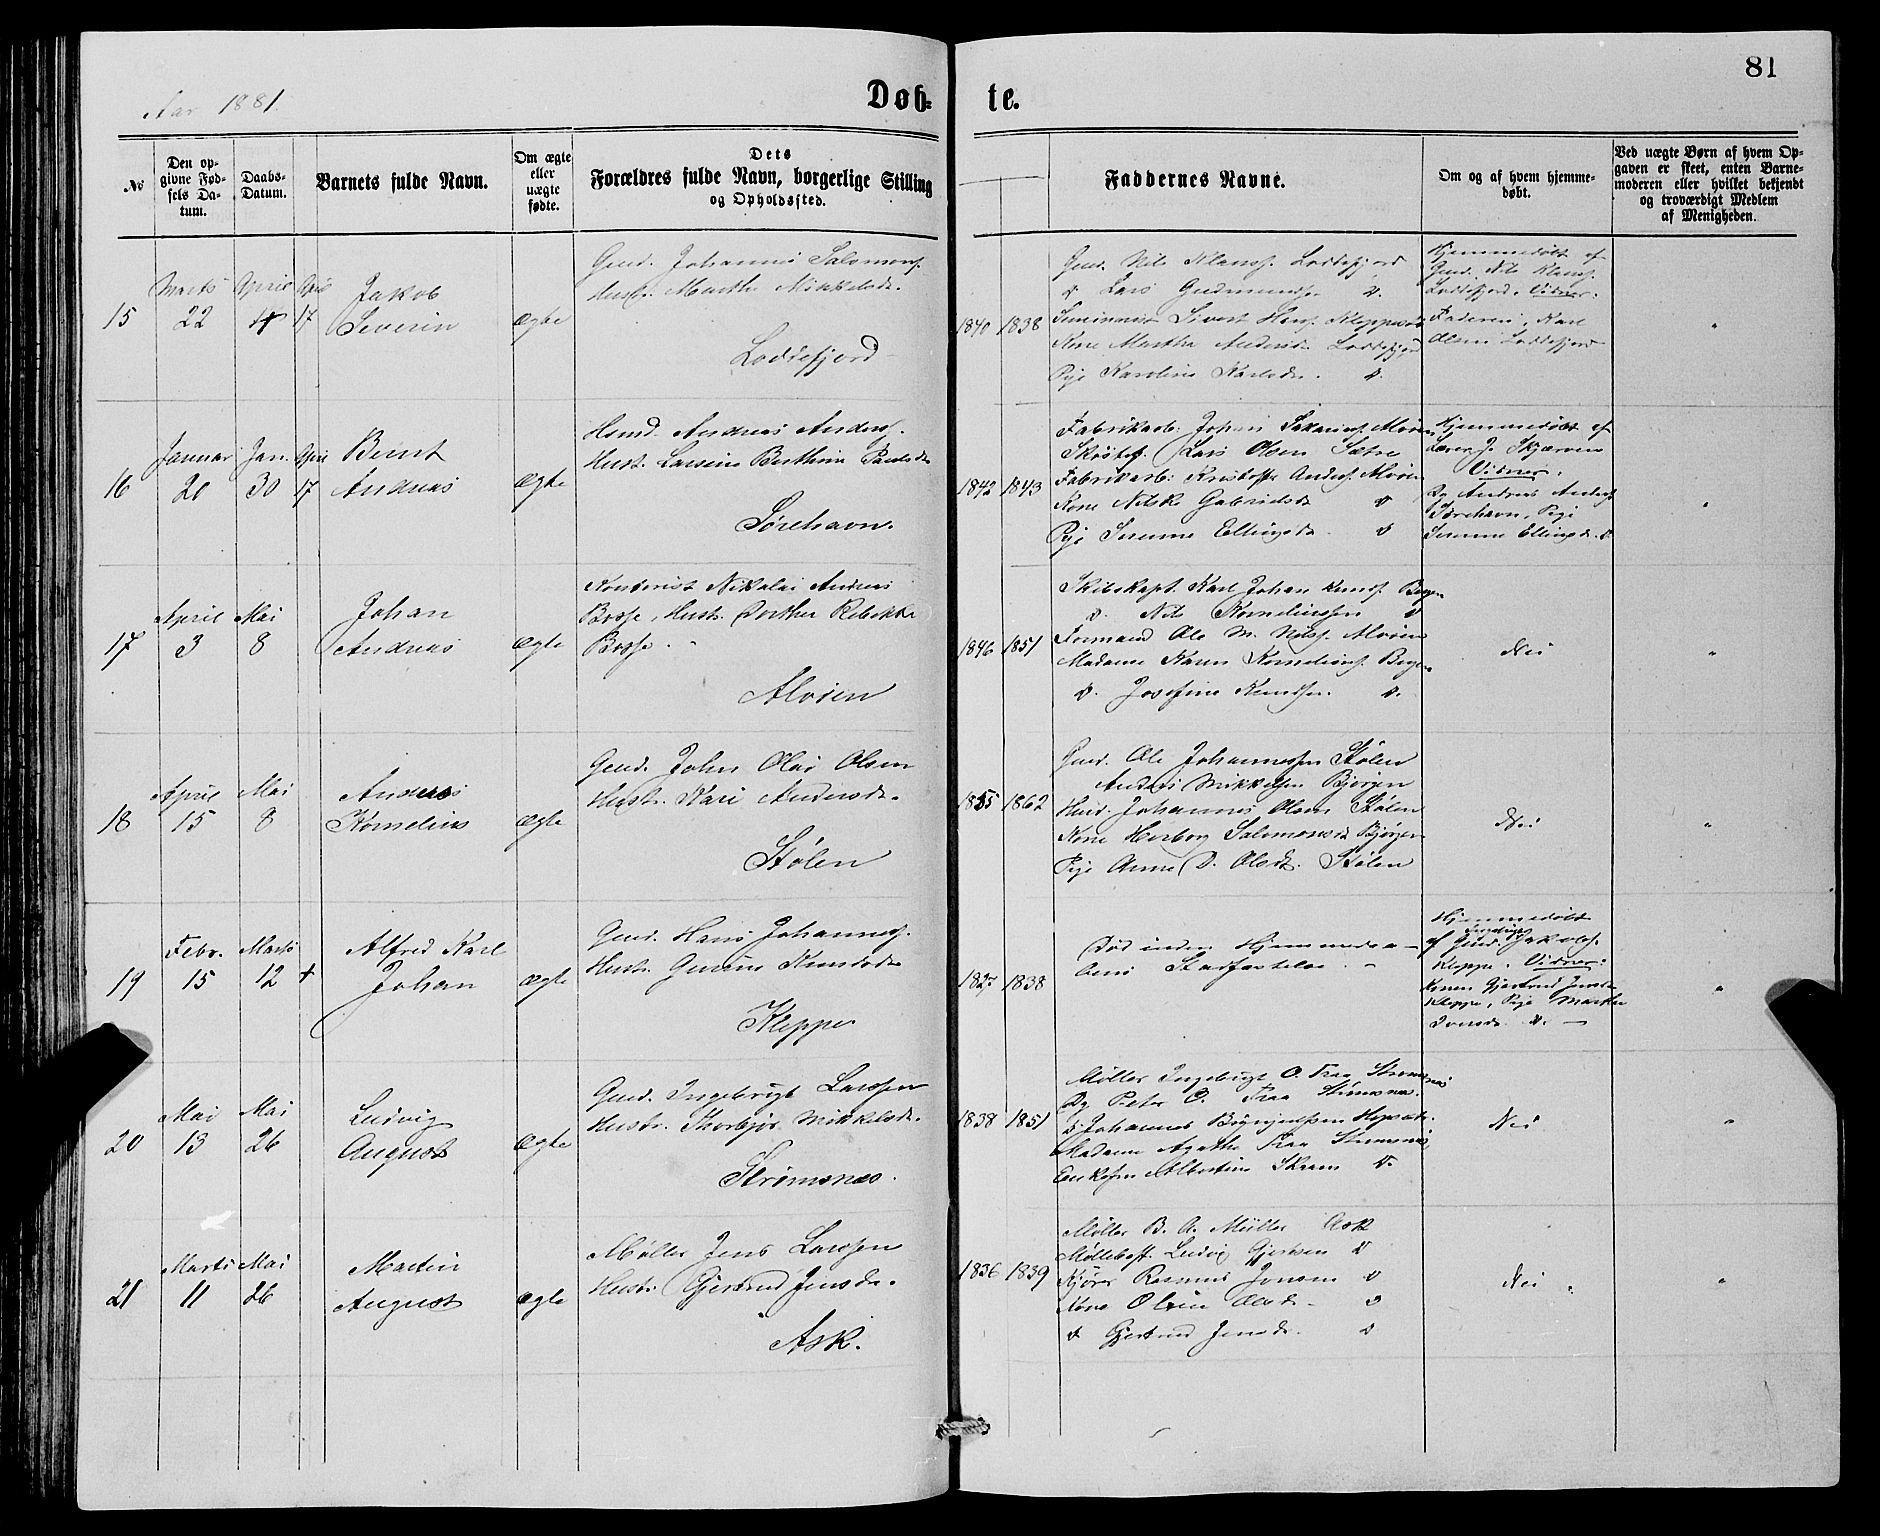 81
Aar 1881.
Døb= te.
No
Den op-
givne Fød-
sels Da-
tum.
Daabs-
Datum.
Barnets fulde Navn.
Om ægte
eller
uægte
fødte.
Dets
Forældres fulde Navn, borgerlige Stilling
og Opholdssted.
Faddernes Navne.
Om og af hvem hjemme-
døbt.
Ved uægte Børn af hvem Op-
gaven er skeet, enten Barne-
moderen eller hvilket bekjendt
og troværdigt Medlem
af Menigheden.
15
Marts
22
April
April
17
Jakob
Severin
ægte
Gmd. Johannes Salomons.
Hustr. Martha Mikkelsdr.
Loddefjord
1840 1838
Gmd. Nils Klauss. Loddefjord
d Lars Gudmundsen d.
Seminarist Sivert Hans. Kleppestø
Kone Martha Andersdr. Loddefjord
Pige Karolina Karlsdr. d.
Hjemmedøbt af
Gmd. Nils Klauss.
Loddefjord. Vidner:
Faderen, Karl
Olsen Loddefjord
"
16
Januar
20
Jan.
30
April
17
Bernt
Andreas
ægte
Hsmd. Andreas Anders.
Hust. Larsine Berthine Paulsdr
Sørehavn.
1842 1843
Fabrikarb. Johan Sakarias. Alvøen
Lars Olsen Sætre
Fabrikarb. Kristoffer Anders. Alvøen
Kone Nilske Gabrielsdr d
Pige Serenne Ellingsdr. d
Hjemmedøbt af
Lærer J. Skjærven
Vidner:
Andreas Anders.
Sørehavn, Pige
Serenne Ellingsdr. d.
"
17
April
3
Mai
8
Johan
Andreas
ægte
Kontorist Nikolai Andreas
Bosse, Hustr. Dorthea Rebekka
Bosse.
Alvøen
1846 1851
Skibskapt. Karl Johan Knuds. Bergen
d. Nils Korneliussen d
Formand Ole M. Nils. Alvøen
Madame Karen Kornelius. Bergen
d. Josefine Knudsen. d.
Nei
"
18
April
15
Mai
8
Andreas
Kornelius
ægte
Gmd. John Olai Olsen
Hustr. Kari Andersdr.
Stølen
1855 1862
Gmd. Ole Johannessen Stølen
Anders Mikkelsen Bjorøen
Johannes Olsen Stølen
Kone Herborg Salomonsdr Bjorøen
Pige Anna D. Olsdt. Stølen
Nei
"
19
Febr.
15
Marts
12
+
Alfred Karl
Johan
ægte
Gmd. Hans Johannes.
Hustr. Gurine Knudsdr
Kleppe
1827 1838
Død inden Hjemmedaa-
bens Stadfæstelse. -
Hjemmedøbt
af Gmd. Jakobs.
Kleppe. Vidner:
Konen Gjertrud Jensdr
Kleppe, Pige Martha
Iversdr. d. —
"
20
Mai
13
Mai
26
Ludvig
August
ægte
Gmd. Ingebrigt Larssen
Hustr. Thorbjør Mikkelsdr.
Strømsnæs.
1838 1851
Møller Ingebrigt O. Traa Strømsnæs
Peter O. Traa Strømsnæs.
Johannes
Madame Agathe Traa Strømsnæs
Albertine Skram d.
Nei
"
21
Marts
11
Mai
26
Martin
August
ægte
Møller Jens Larssen
Hustr. Gjertrud Jensdr.
Ask.
1836 1839
Møller B. A. Müller Ask
Møllebest. Ludvig Gjertsen d
Kjører Rasmus Jonsen d
Kone Oline Olsdr. d
d Gjertrud Jensdr. d
Nei.
"